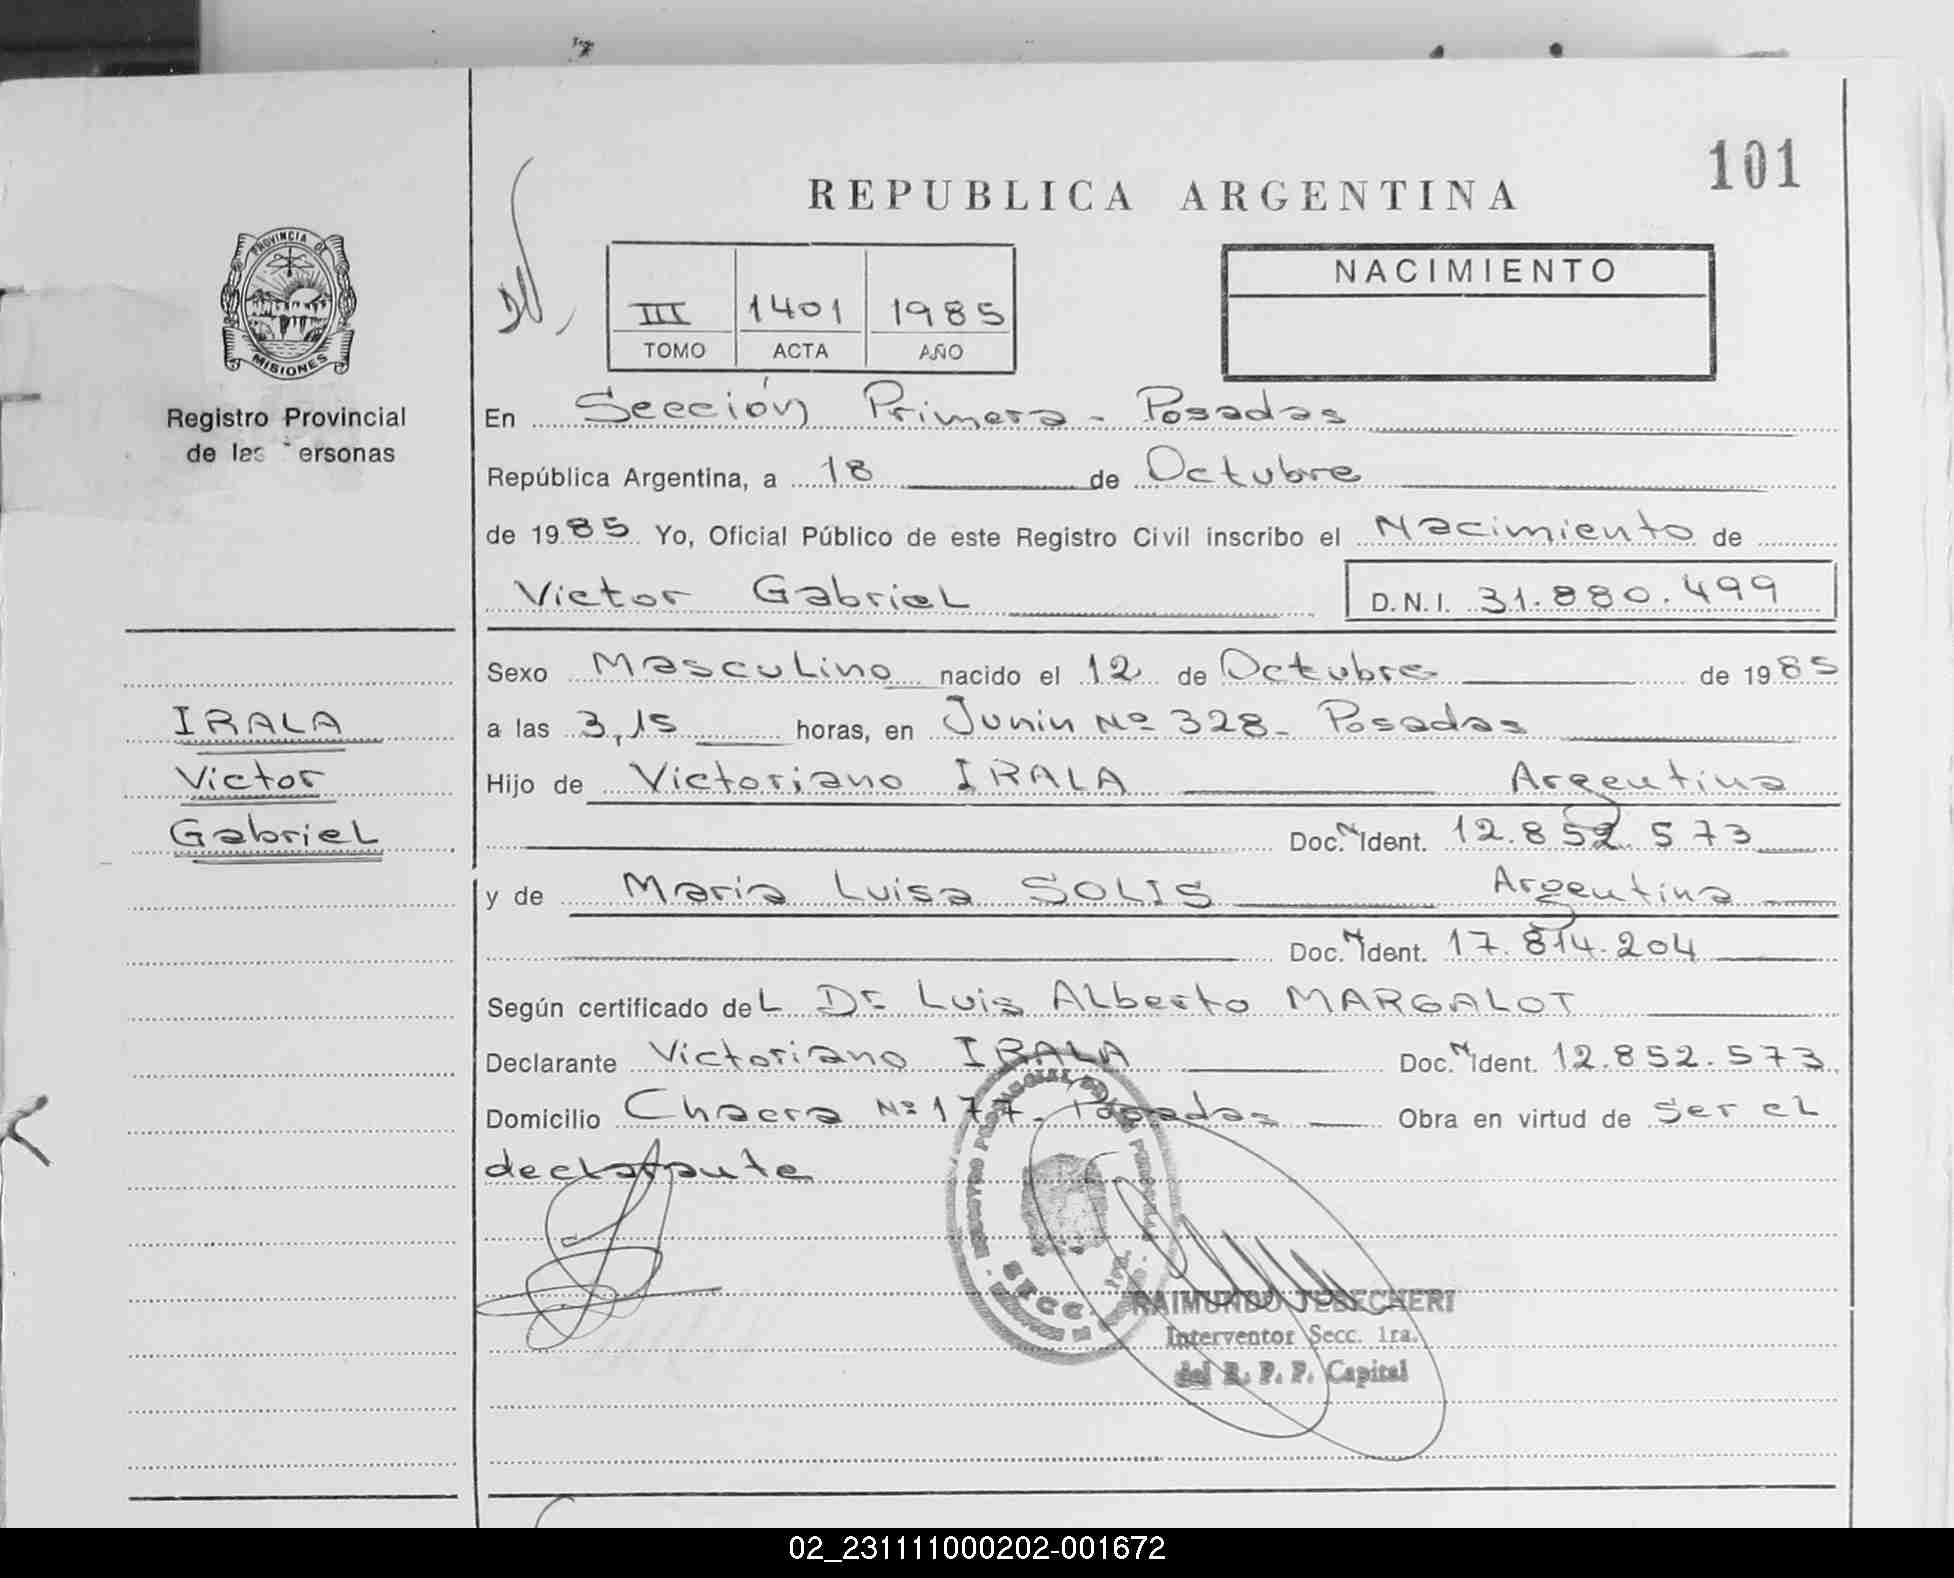 101
REPUBLICA ARGENTINA
PROVINCIA DE
MISIONES
Registro Provincial
de las ersonas
III 1401 1985
TOMO ACTA AÑO
NACIMIENTO
En Sección Primera - Posadas
República Argentina, a 18 de Octubre
de 1985 Yo, Oficial Público de este Registro Civil inscribo el Nacimiento de
Victor Gabriel D.N.I. 31.880.499
Sexo Masculino nacido el 12 de Octubre de 1985
IRALA
Victor
Gabriel
a las 3,15 horas, en Junin Nº 328- Posadas
Hijo de Victoriano IRALA Argentina
Doc. N Ident. 12.852.573
y de Maria Luisa SOLIS Argentina
Doc. N Ident. 17.814.204
Según certificado del Dr Luis Alberto MARGALOT
Declarante Victoriano IRALA Doc. N Ident. 12.852.573
Domicilio Chacra Nº 177- Posadas Obra en virtud de ser el
declarante
REGISTRO PROVINCIAL DE LAS PERSONAS
SECC. 1ra.
RAIMUNDO
Interventor Secc. 1ra.
del R. P. P. Capital
02_231111000202-001672